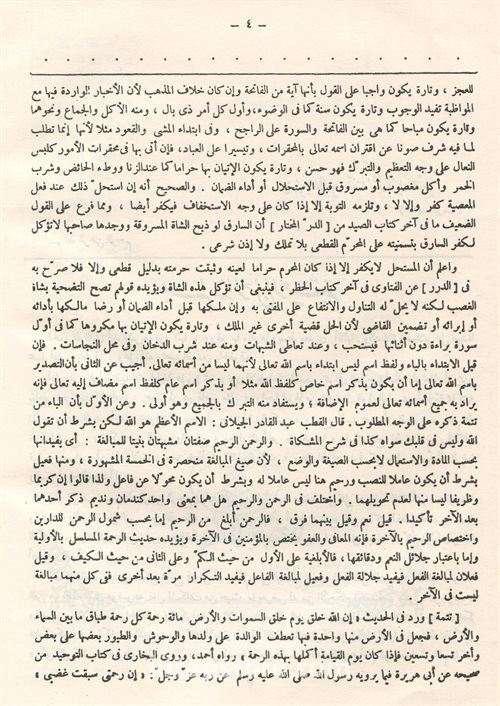 — ٤ —
للعجز ، وتارة يكون واجبا على القول بأنها آية من الفاتحة وإن كان خلاف المذهب لأن الأخبار الواردة فيها مع
المواظبة تفيد الوجوب وتارة يكون سنة كما فى الوضوء، وأول كل أمر ذى بال ، ومنه الأكل والجماع ونحوهما
وتارة يكون مباحا كما هى بين الفاتحة والسورة على الراجح ، وفى ابتداء المشى والقعود مثلا لأنها إنما تطلب
لما فيه شرف صونا عن اقتران اسمه تعالى بالمحقرات ، وتيسيرا على العباد، فإن أتى بها فى محقرات الأمور كلبس
النعال على وجه التعظيم والتبرك فهو حسن ، وتارة يكون الإتيان بها حراما كما عند الزنا ووطء الحائض وشرب
الخمر وأكل مغصوب أو مسروق قبل الاستحلال أو أداء الضمان . والصحيح أنه إن استحل ذلك عند فعل
المعصية كفر وإلا لا ، وتلزمه التوبة إلا إذا كان على وجه الاستخفاف فيكفر أيضا ، ومما فرع على القول
الضعيف ما فى آخر كتاب الصيد من [ الدر المختار ] أن السارق لو ذبح الشاة المسروقة ووجدها صاحبها لا تؤكل
لكفر السارق بتسميته على المحرم القطعى بلا تملك ولا إذن شرعى .
واعلم أن المستحل لا يكفر إلا إذا كان المحرم حراما لعينه وثبتت حرمته بدليل قطعى وإلا فلا صرح به
فى [ الدرر ] عن الفتاوى فى آخر كتاب الحظر ، فينبغى أن تؤكل هذه الشاة ويؤيده قولهم تصح التضحية بشاة
الغصب لكنه لا يحل له التناول والانتفاع على المفتى به وإن ملكها قبل أداء الضمان أو رضا مالكها بأدائه
أو إبرائه أو تضمين القاضى لأن الحل قضية أخرى غير الملك ، وتارة يكون الإتيان بها مكروها كما فى أول
سورة براءة دون أثنائها فيستحب ، وعند تعاطى الشبهات ومنه عند شرب الدخان وفى محل النجاسات . فإن
قيل الابتداء بالباء ولفظ اسم ليس ابتداء باسم الله تعالى لأنهما ليسا من أسمائه تعالى. أجيب عن الثانى بأن التصدير
باسم الله تعالى إما أن يكون بذكر اسم خاص كلفظ الله مثلا أو بذكر اسم عام كلفظ اسم مضاف إليه تعالى فإنه
يراد به جميع أسمائه تعالى لعموم الإضافة ؛ ويستفاد منه التبرك بالجميع وهو أولى . وعن الأول بأن الباء من
تتمة ذكره على الوجه المطلوب . قال القطب عبد القادر الجيلانى : الاسم الأعظم هو الله لكن بشرط أن تقول
الله وليس فى قلبك سواه كذا فى شرح المشكاة . والرحمن الرحيم صفتان مشبهتان بنيتا للمبالغة : أى يفيدانها
بحسب المادة والاستعمال لا بحسب الصيغة والوضع ، لأن صيغ المبالغة منحصرة فى الخمسة المشهورة ، ومنها فعيل
بشرط أن يكون عاملا للنصب ورحيم هنا ليس عاملا له وبشرط أن يكون محولا عن فاعل ولذا قالوا إن كريما
وظريفا ليسا منها لعدم تحويلهما . واختلف فى الرحمن والرحيم هل هما بمعنى واحد كندمان ونديم ذكر أحدهما
بعد الآخر تأكيدا . قيل نعم وقيل بينهما فرق ، فالرحمن أبلغ من الرحيم إما بحسب شمول الرحمن للدارين
واختصاص الرحيم بالآخرة فإنه المعافى والعفو يختص بالمؤمنين فى الآخرة ويؤيده حديث الرحمة المسلسل بالأولية
وإما باعتبار جلائل النعم ودقائقها ، فالأبلغية على الأول من حيث الكم وعلى الثانى من حيث الكيف ، وقيل
فعلان لمبالغة الفعل فيفيد جلالة الفعل وفعيل لمبالغة الفاعل فيفيد التكرار مرة بعد أخرى ففى كل منهما مبالغة
ليست فى الآخر .
[ تتمة ] ورد فى الحديث « إن الله خلق يوم خلق السموات والأرض مائة رحمة كل رحمة طباق ما بين السماء
والأرض ، فجعل فى الأرض منها واحدة فبها تعطف الوالدة على ولدها والوحوش والطيور بعضها على بعض
وأخر تسعا وتسعين فإذا كان يوم القيامة أكملها بهذه الرحمة » رواه أحمد، وروى البخارى فى كتاب التوحيد من
صحيحه عن أبى هريرة فيما يرويه رسول الله صلى الله عليه وسلم عن ربه عز وجل: « إن رحمتى سبقت غضبى »